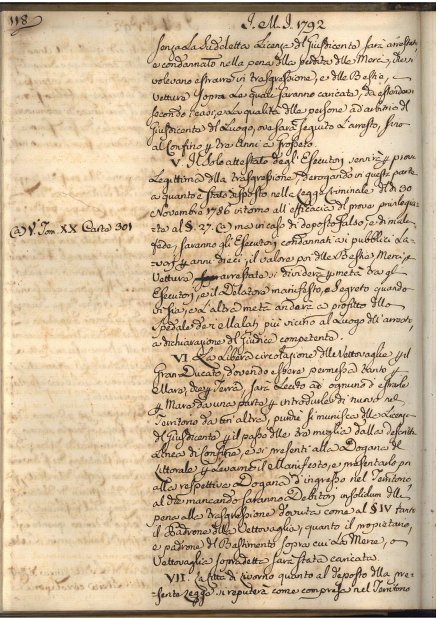 118
I. M. I. 1792
senza La sudoletta Licenza del Giusdicente sarà arrestato
e condannato nella pena della perdita delle Merci, che si
volevano estrarre in trasgressione, e delle Bestie, e
Vetture sopra Le quali saranno caricate, da estendersi
secondo i casi, e La qualità delle persone ad arbitrio del
Giusdicente del Luogo, ove sarà seguito L'arresto, fino
al Confino p tre Anni a Grosseto
V. Il solo attestato degl'Esecutori servirà p prova
Legittima della trasgressione derogando in questa parte
a quanto è stato disposto nella Legge Criminale de dì 30
Novembre 1786 intorno all'efficacia del prove privilegia-
te al §. 27. (a) ma in caso di deposto falso, e di mala
fede, saranno gli Esecutori condannati ai pubblici La-
vori p anni dieci, il valore poi delle Bestie, Merci, e
Vetture arrestate si dividerà p metà tra gl'
Esecutori, e il Delatore manifesto, o segreto quando
vi sia, e L'altra metà anderà a profitto dello
Spedale dei Malati più vicino al Luogo dell'arresto,
a dichiarazione del Giudice competente.
(a) V. Tom XX Carta 301
VI. La Libera circolazione delle Vettovaglie p il
Gran-Ducato, dovendo essere permessa tanto p
Mare, che p Terra, sarà Lecito ad ognuno d'estrarle
p Mare da una parte p introdurle di nuovo nel
Territorio da un'altra, purchè si munisca della Licenza
del Giusdicente p il passo delle tre miglia dalla descritta
Linea di Confine, e si presenti alla Dogana del
Littorale p Levarne il Manifesto, e presentarlo poi
alla respettiva Dogana d'ingresso nel Territorio,
al che mancando saranno Debitori insolidum della
pena alla trasgressione dovuta come al § IV tanto
il Padrone della Vettovaglia, quanto il proprietario,
e padrone del Bastimento sopra cui La Merce, o
Vettovaglia sopradetta sarà stata caricata.
VII. La Città di Livorno quanto al disposto della pre-
sente Legge si reputerà come compresa nel Territorio